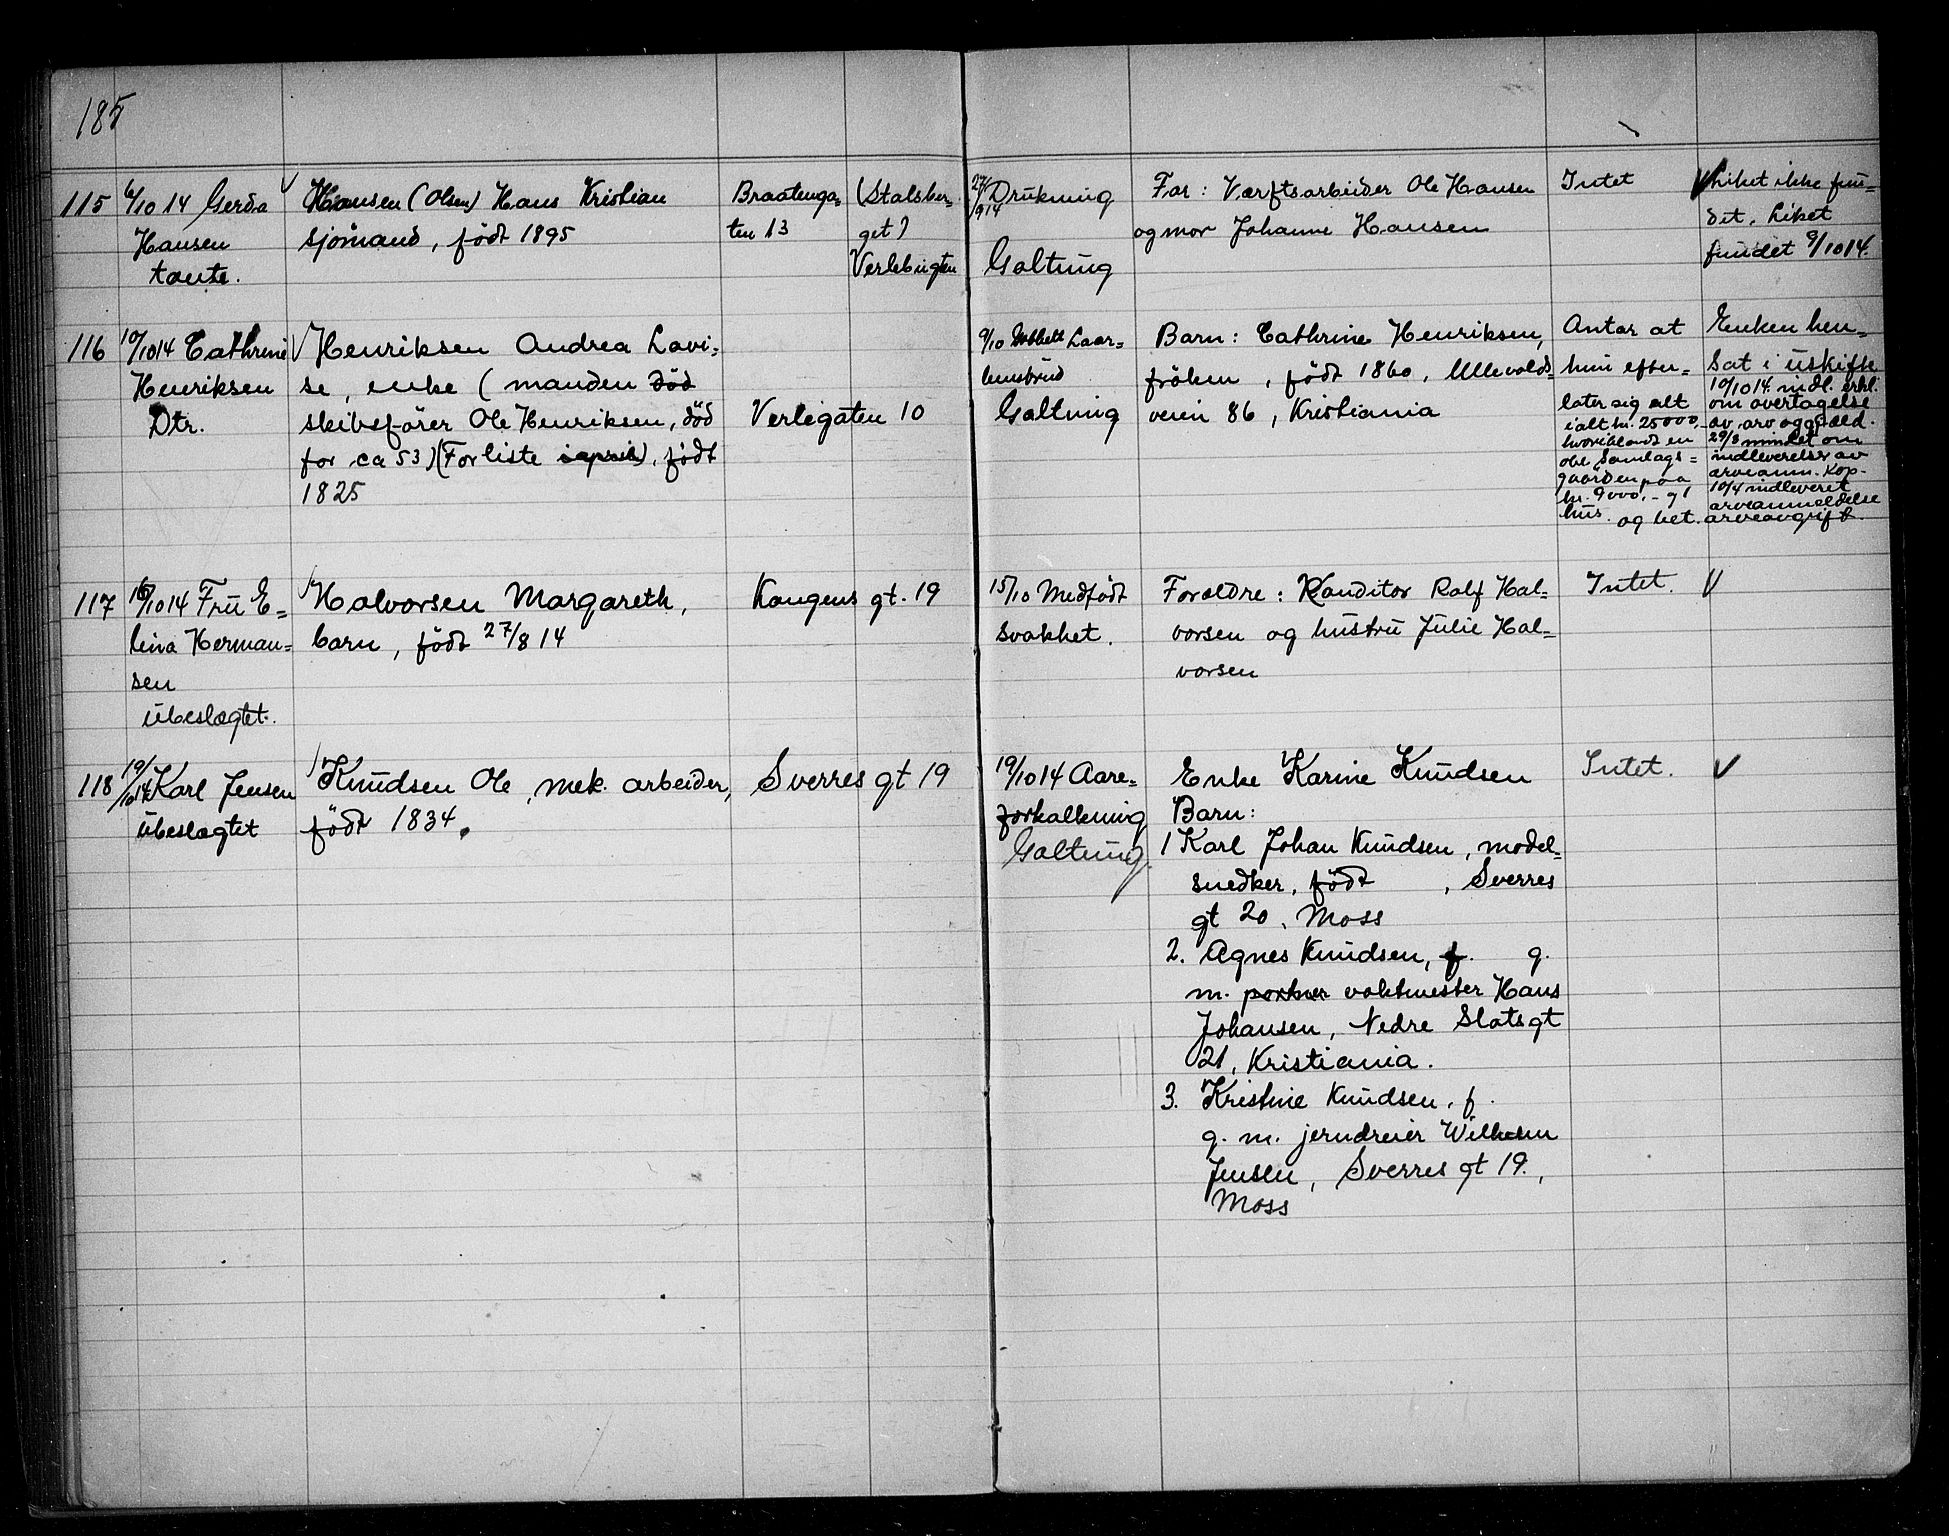 185
115 6/10 14 Gerda
Hansen
tante.
Hansen (Olsen) Hans Kristian
sjömand, födt 1895
Braatenga=
ten 13
(Stalsber-
get)
Verlebugten
27/9 14 Drukning
Galtung
Far: Værftsarbeider Ole Hansen
og mor Johanne Hansen
Intet
Liket ikke fun=
det. Liket
fundet 9/10 14.
116 10/10 14 Cathrine
Henriksen
Dtr.
Henriksen Andrea Lovi=
se, enke (manden död
skibsförer Ole Henriksen, död
for ca 53) (Forliste i april), födt
1825
Verlegaten 10
9/10 Laar=
hensbrud
Galtung
Barn: Cathrine Henriksen,
fröken, födt 1860, Ullevolds=
veien 86, Kristiania
Antar at
hun efter=
later sig alt
ialt kr. 25000,-
hvoriblandt en
obl. Samlags=
gaarden paa
kr. 9000,- og 1
hus.
Enken hen=
sat i uskifte
10/10 14 mdl. erkl.
om overtagelse
av arv og gjæld.
29/3 mindet om
indleverelse av
arveanm. Kop.
10/4 indleveret
arveanmeldelse
og bet. arveavgift.
117 16/10 14 Fru E=
lina Herman=
sen
ubeslægtet.
Halvorsen Margareth,
barn, födt 27/8 14
Kongens gt. 19
15/10 Medfödt
svakhet.
Forældre: Konditor Rolf Hal=
vorsen og hustru Julie Hal=
vorsen
Intet.
118 19/10 14 Karl Jensen
ubeslægtet
Knudsen Ole, mek. arbeider,
födt 1834.
Sverres gt 19
19/10 14 Aare=
forkalkning
Galtung.
Enke Karine Knudsen
Barn:
1 Karl Johan Knudsen, model=
snedker, födt , Sverres
gt 20, Moss
2. Agnes Knudsen, f. g.
m. portner vaktmester Hans
Johansen, Nedre Slotsgt
21, Kristiania.
3. Kristine Knudsen, f.
g. m. jerndreier Wilhelm
Jensen, Sverres gt 19.,
Moss
Intet.